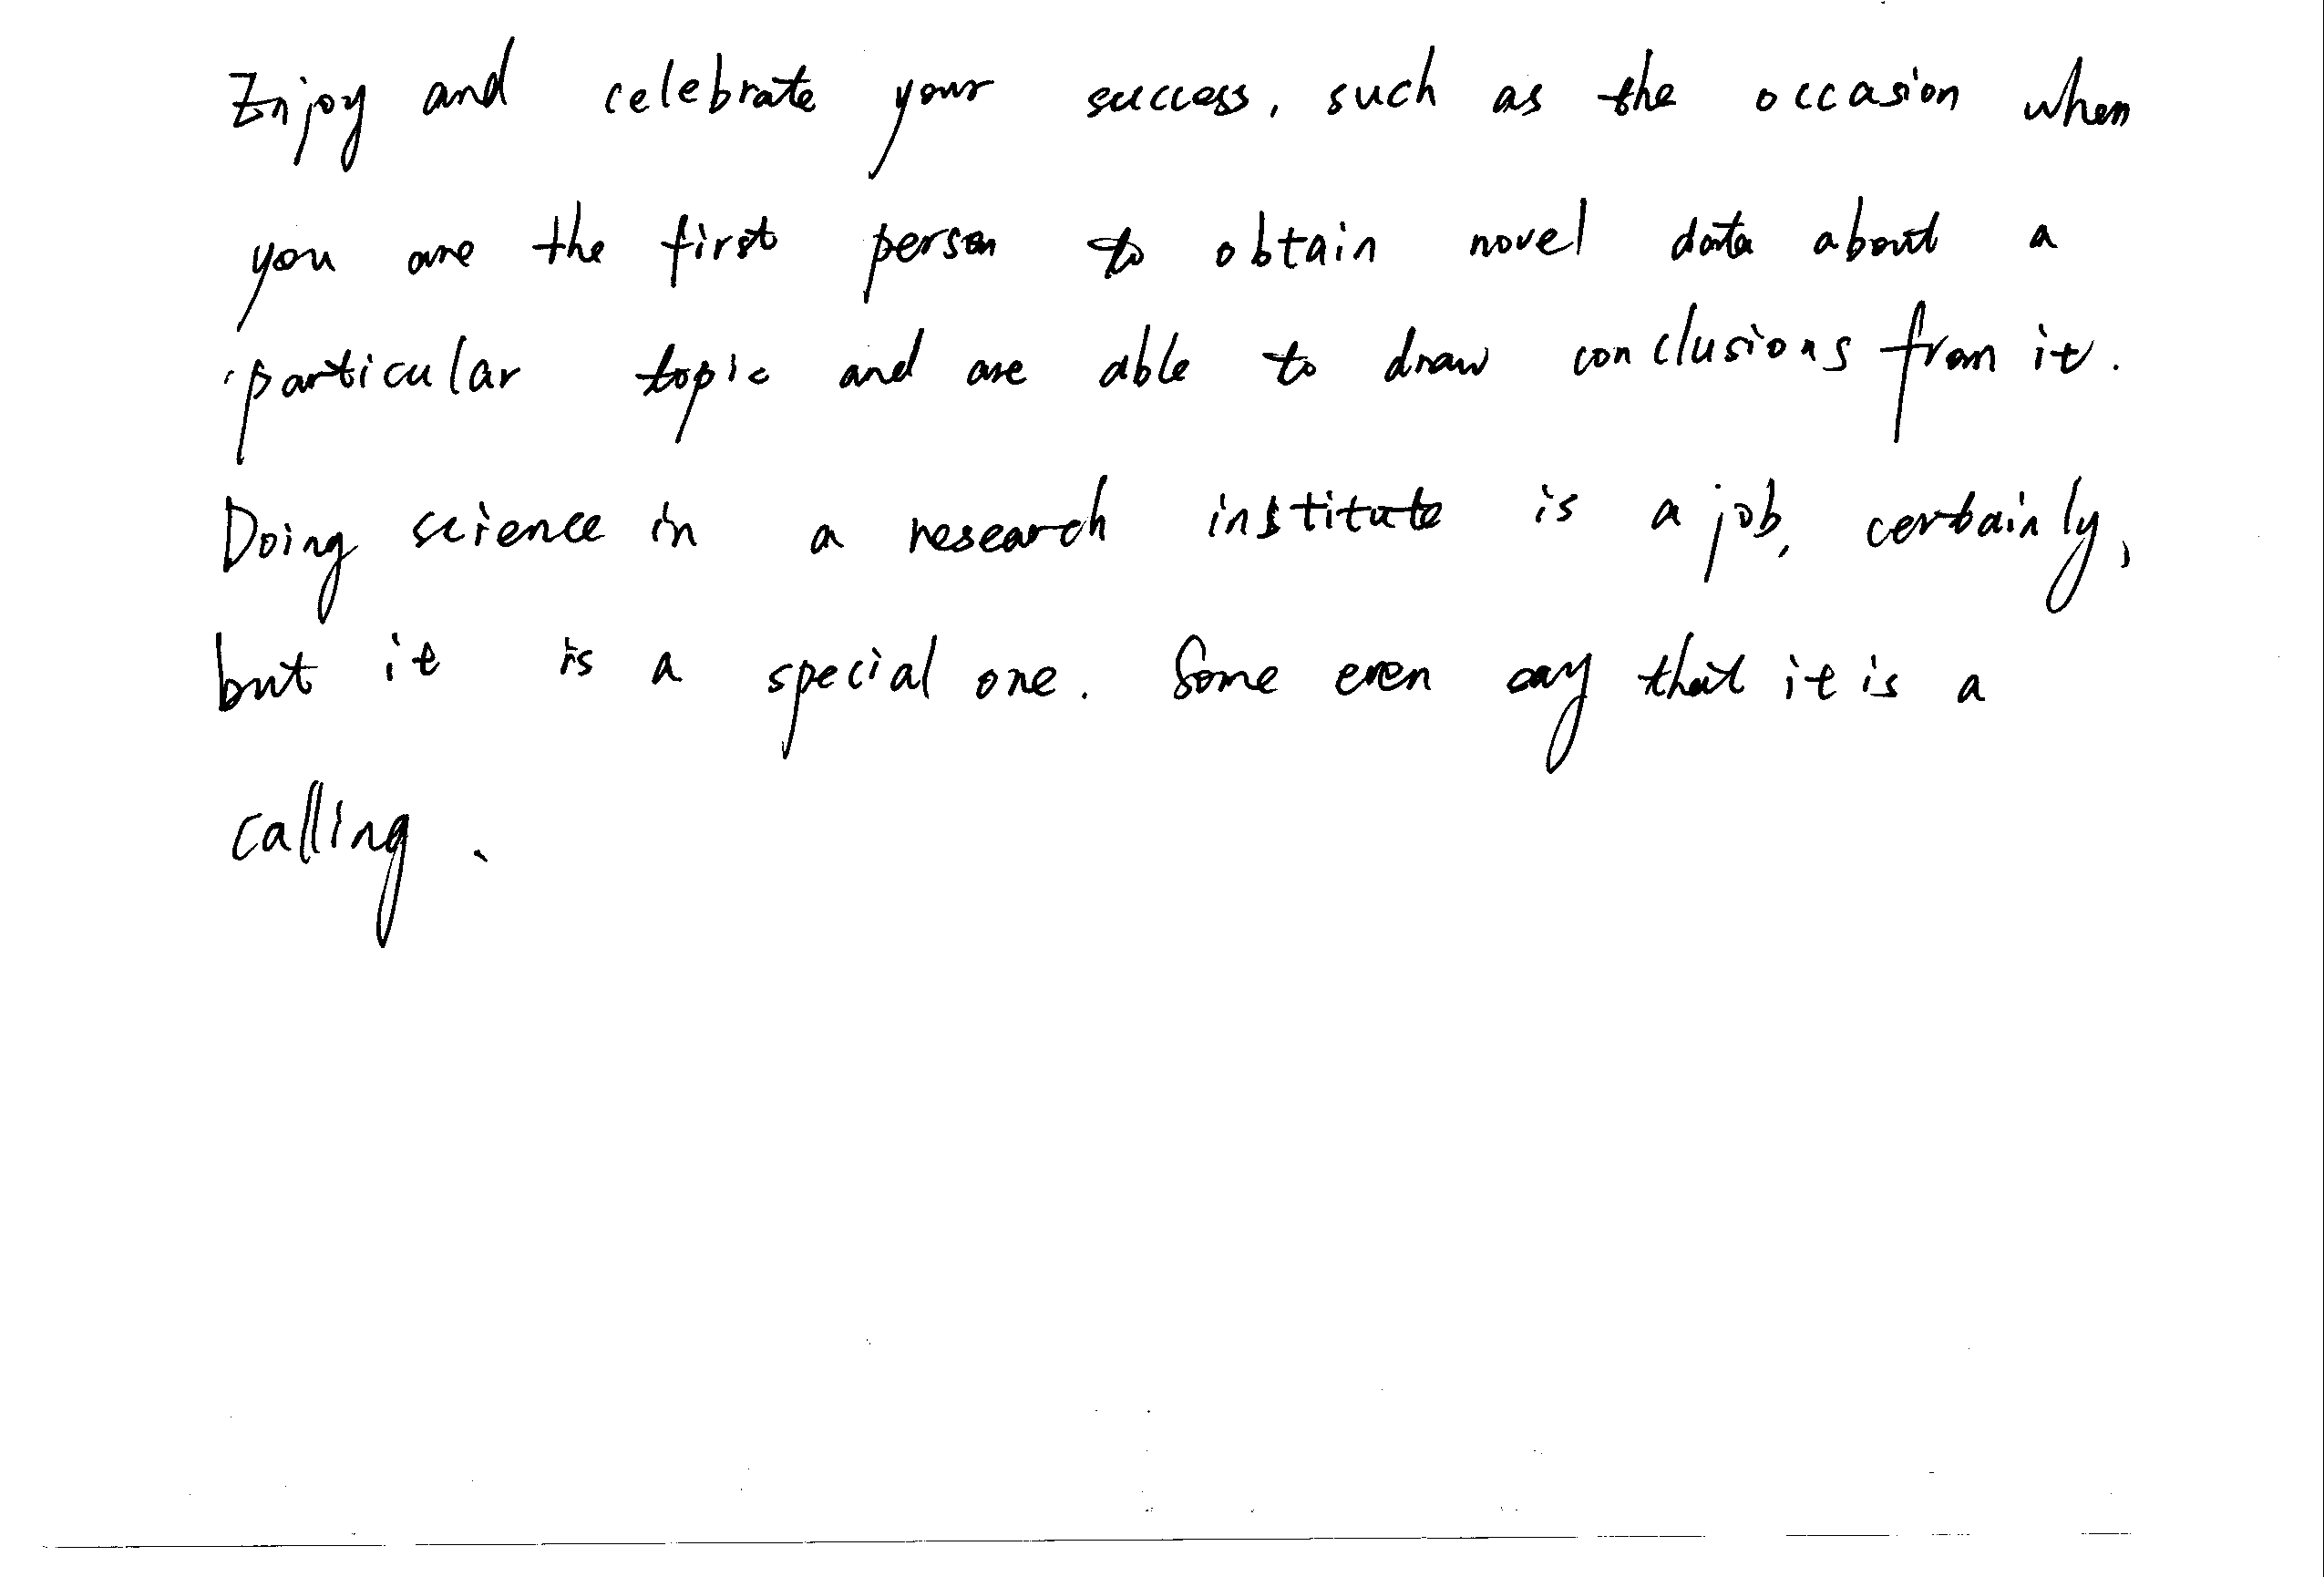 Enjoy and celebrate your success, such as the occasion when
you are the first person to obtain novel data about a
particular topic and are able to draw conclusions from it.
Doing science in a research institute is a job, certainly,
but it is a special one. Some even say that it is a
calling.